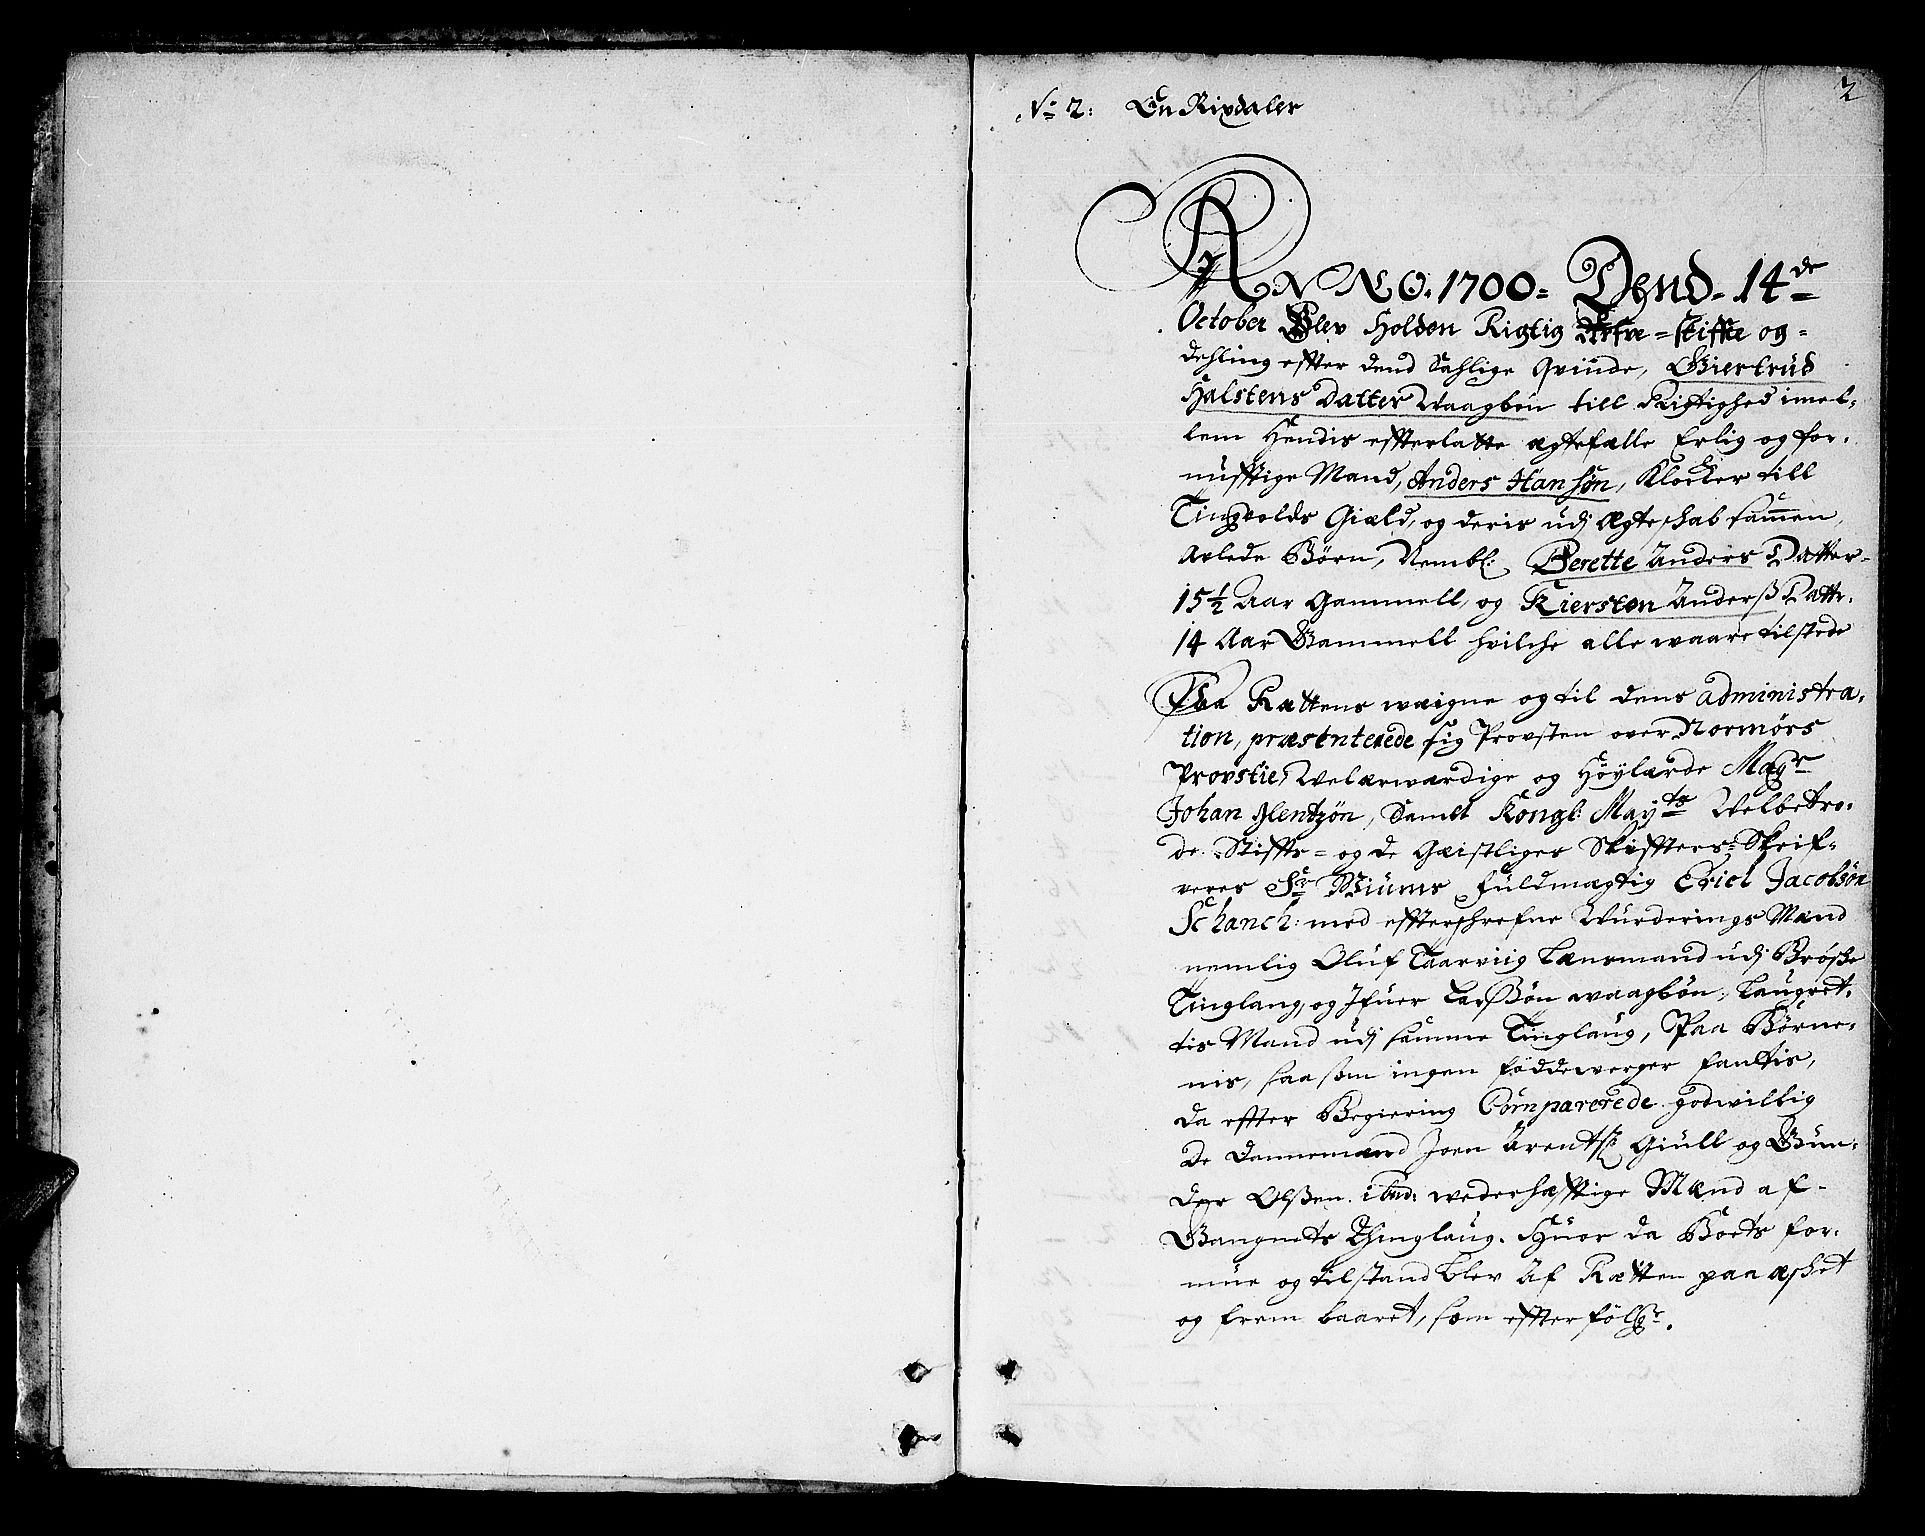 2
No 2: En Rixdaler
ANNO. 1700 = Dend - 14de
October Blev Holden Rigtig Arfve = skiffte og =
dehling effter dend Sahlige Qvinde, Giertrud
Halstens Datter Waagbøn till Rigtighed imel,
lem Hendis effterlatte ægtefælle Erlig og for,
nufftige Mand, Anders Hansøn, Klocker till
Tingvolds Giæld, og deris udj Ægteschab sammen
Avlede Børn, Nembl: Berette Anders Datter =
15½ Aar Gammell, og Kiersten Anderß Dattr.
14 Aar Gammell hvilche alle waare tilstede
Paa Rættens waigne og til dens administra,
tion, præsenterede sig Provsten over Normørs
Provstie, Welærwærdige og Høylærde Magr
Johan Jentzøn, Samt Kongl: Mayts Welbetro,
de Stiffts = og de Gæistliges Skiffters = Skrif,
veres Sr Biums Fuldmægtig Eriel Jacobsøn
Schanch: med effterschrefne Wurderings Mænd
nemlig Oluf Taarviig Lænsmand udj Brøsche
Tinglaug, og Ifuer Larßøn Waagbøn, Laugret,
tis Mand udj samme Tinglaug, Paa Børne,
nis, saasom ingen føddewerger fanttis,
da effter Begiering Comparerede godwillig
De Dannemænd Joen Arentß Giull og Gun,
der Olßen ibid: wederhæfftige Mænd af -
Gangnets Thinglaug. Huor da Boets for,
mue og tilstand blev af Rætten paa æschet
og frem baaret, som effter følger.